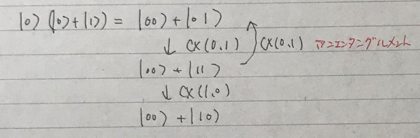 |0⟩(|0⟩+|1⟩) = |00⟩+|01⟩
↓ CX(0,1) CX(0,1) アンエンタングルメント
|00⟩+|11⟩
↓ CX(1,0)
|00⟩+|10⟩